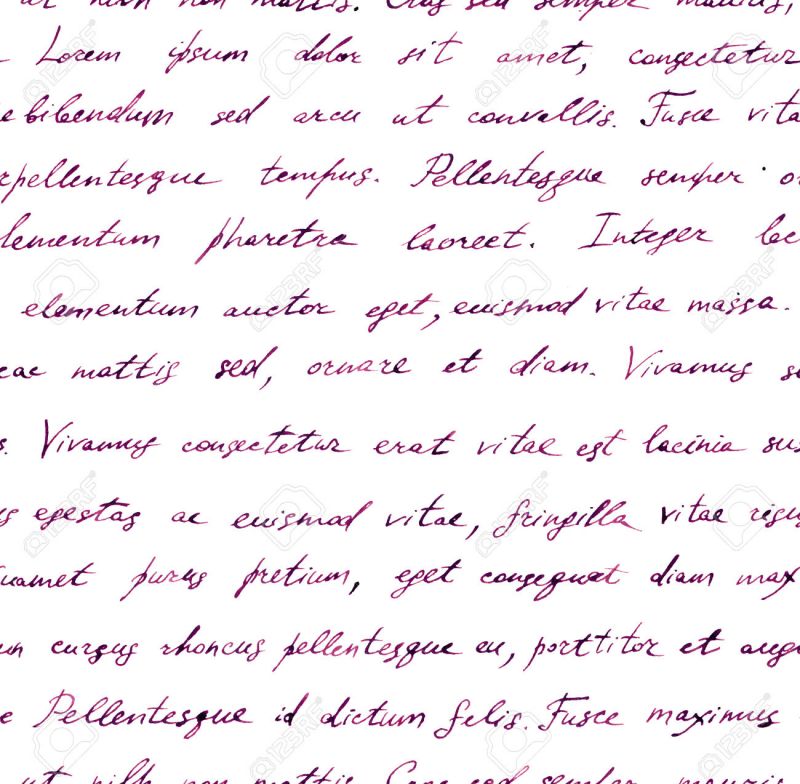 ut nibh non mattis. Cras sed semper mauris,
Lorem ipsum dolor sit amet, consectetur
e bibendum sed arcu ut convallis. Fusce vita
rpellentesque tempus. Pellentesque semper o
lementum pharetra laoreet. Integer lac
elementum auctor eget, euismod vitae massa.
cac mattis sed, ornare et diam. Vivamus s
s. Vivamus consectetur erat vitae est lacinia sus
us egestas ac euismod vitae, fringilla vitae risus
uamet purus pretium, eget consequat diam max
un cursus rhoncus pellentesque eu, porttitor et augu
e Pellentesque id dictum felis. Fusce maximus
ut nibh non mattis. Cras sed semper mauris